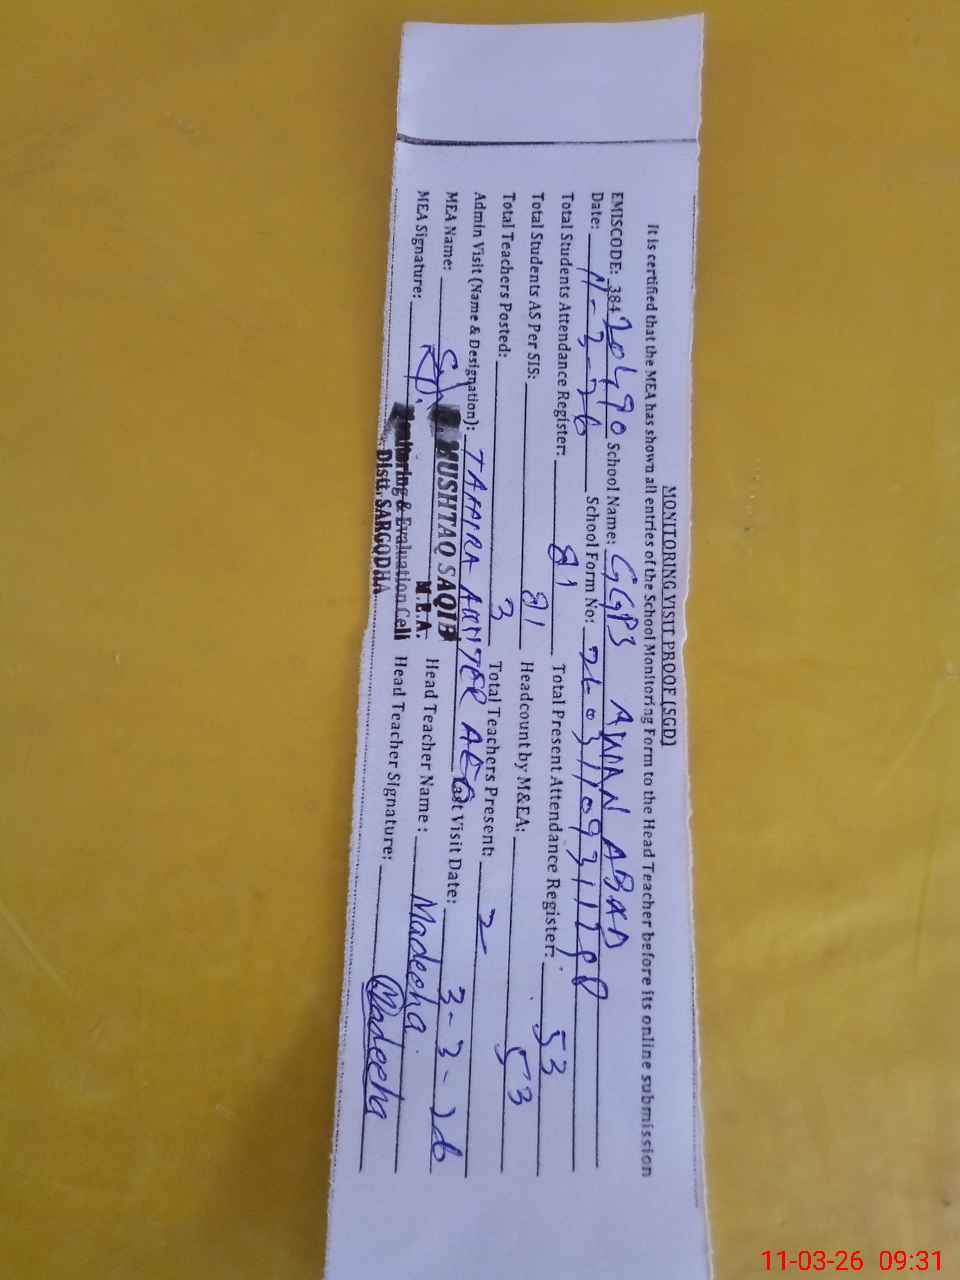 MONITORING VISIT PROOF (SGD)
It is certified that the MEA has shown all entries of the School Monitoring Form to the Head Teacher before its online submission
EMISCODE: 38420490 School Name: GGPS AWAN ABAD
Date: 11-3-26 School Form No:
Total Students Attendance Register: 81 Total Present Attendance Register: 53
Total Students AS Per SIS: 81 Headcount by M&EA: 53
Total Teachers Posted: 3 Total Teachers Present: 2
Admin Visit (Name & Designation): TAHIRA AKHTER AEO Last Visit Date: 3-3-26
MEA Name: MUSHTAQ SAQIB Head Teacher Name: Madeeha
M.E.A.
MEA Signature: Head Teacher Signature: Madeeha
Monitoring & Evaluation Cell
Distt. SARGODHA
11-03-26 09:31